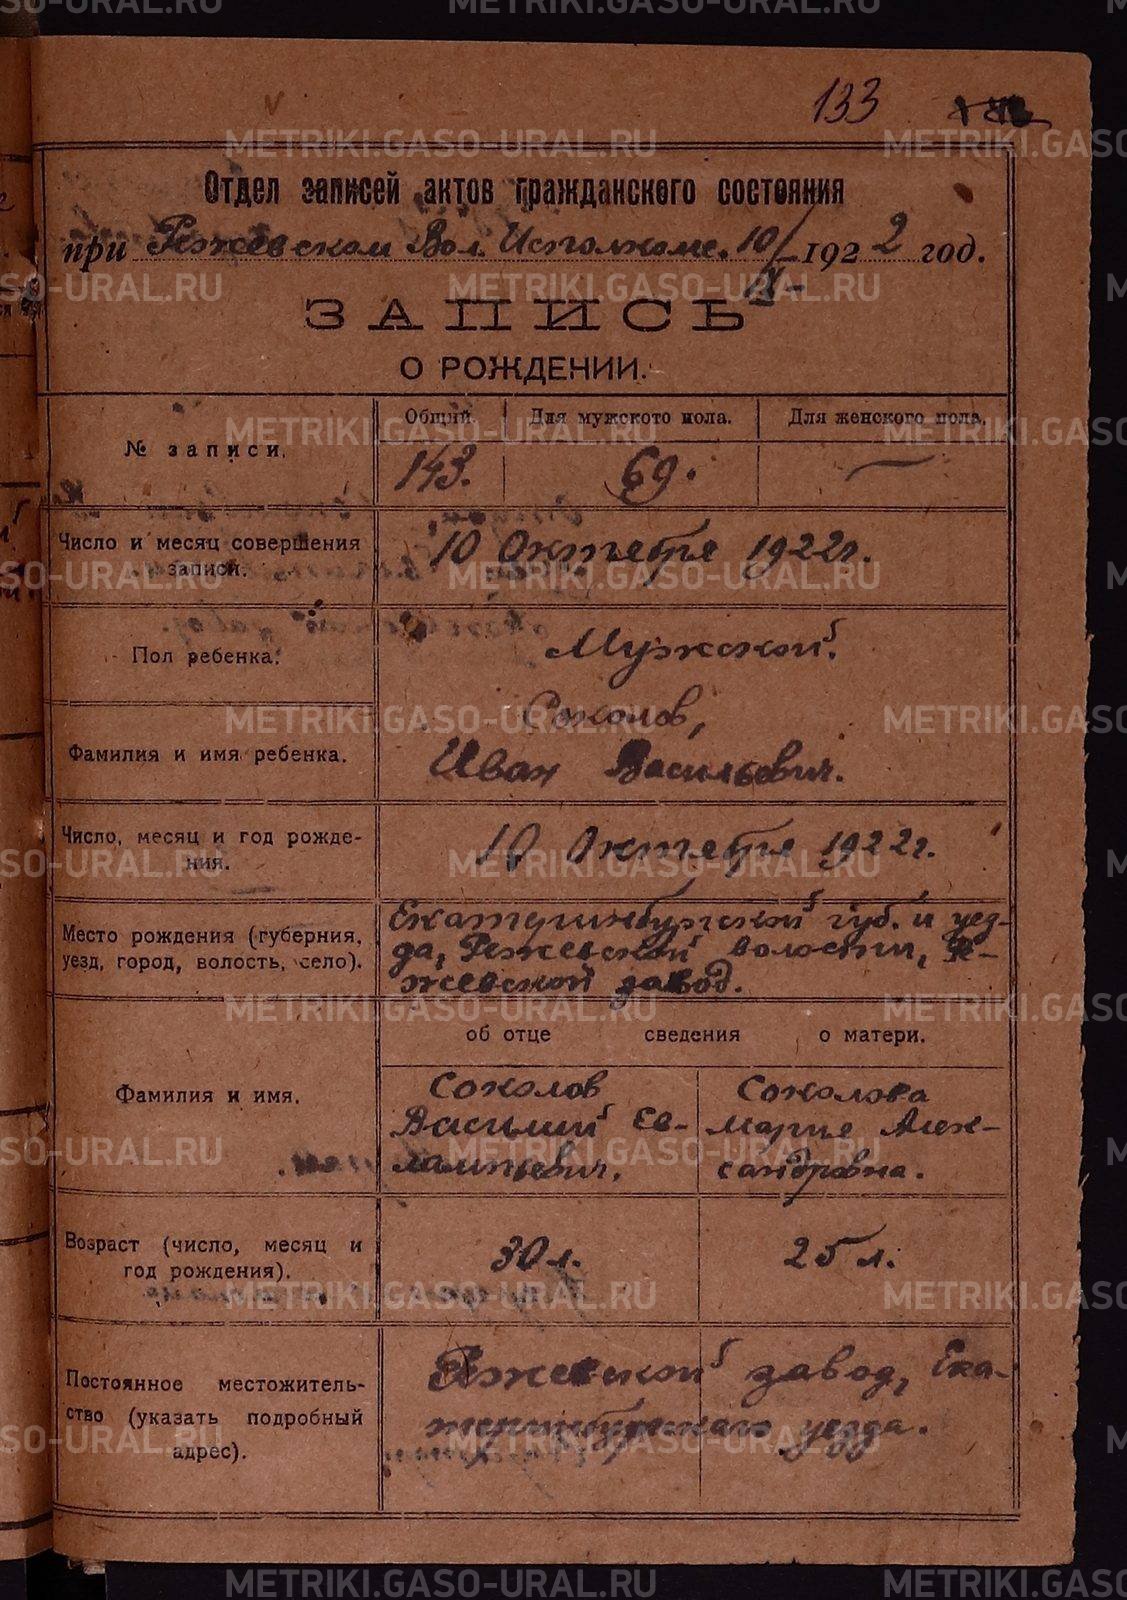 133
Отдел записей актов гражданского состояния
при Режевском Вол. Исполкоме. 10/X- 1922 год.
ЗАПИСЬ
О РОЖДЕНИИ.
№ записи. Общий. Для мужского пола. Для женского пола.
143. 69. —
Число и месяц совершения записи. 10 Октября 1922 г.
Пол ребенка. Мужской.
Фамилия и имя ребенка. Соколов,
Иван Васильевич.
Число, месяц и год рожде-
ния. 10 Октября 1922 г.
Место рождения (губерния,
уезд, город, волость, село).
Екатеринбургской губ. и уез-
да, Режевской волости, Ре-
жевской завод.
об отце сведения о матери.
Фамилия и имя.
Соколов
Василий Ев-
лампьевич.
Соколова
Мария Алек-
сандровна.
Возраст (число, месяц и
год рождения).
30 л. 25 л.
Постоянное местожитель-
ство (указать подробный
адрес).
Режевской завод, Ека-
теринбургского уезда.
METRIKI.GASO-URAL.RU